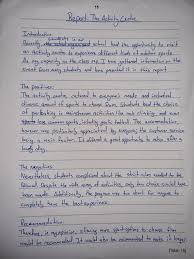 15
Report: The Activity Centre
Introduction
Recently, the school had the opportunity to visit
an activity centre to experience different kinds of outdoor sports.
As my capacity as the class rep. I have gathered information on the
event from many students and have presented it in this report.
The positives:
The activity centre catered to everyone's needs and included
diverse amount of sports to choose from. Students had the choice
of participating in mainstream activities like wall climbing, and even
sports less common, including goalie football. The accommodation,
however was particularly appreciated by everyone, the customer service
being a main factor. It offered a good opportunity to relax after a
busy day.
The negatives:
Nevertheless, students complained about the strict rules needed to be
followed. Despite the wide array of activities, only two choices could have
been made. Additionally, the program was too short for anyone to
completely have the best experience.
Recommendation:
Therefore, in my opinion, allowing more sport options to choose from
would be recommended. It would also be recommended to make it longer
[Total: 16]